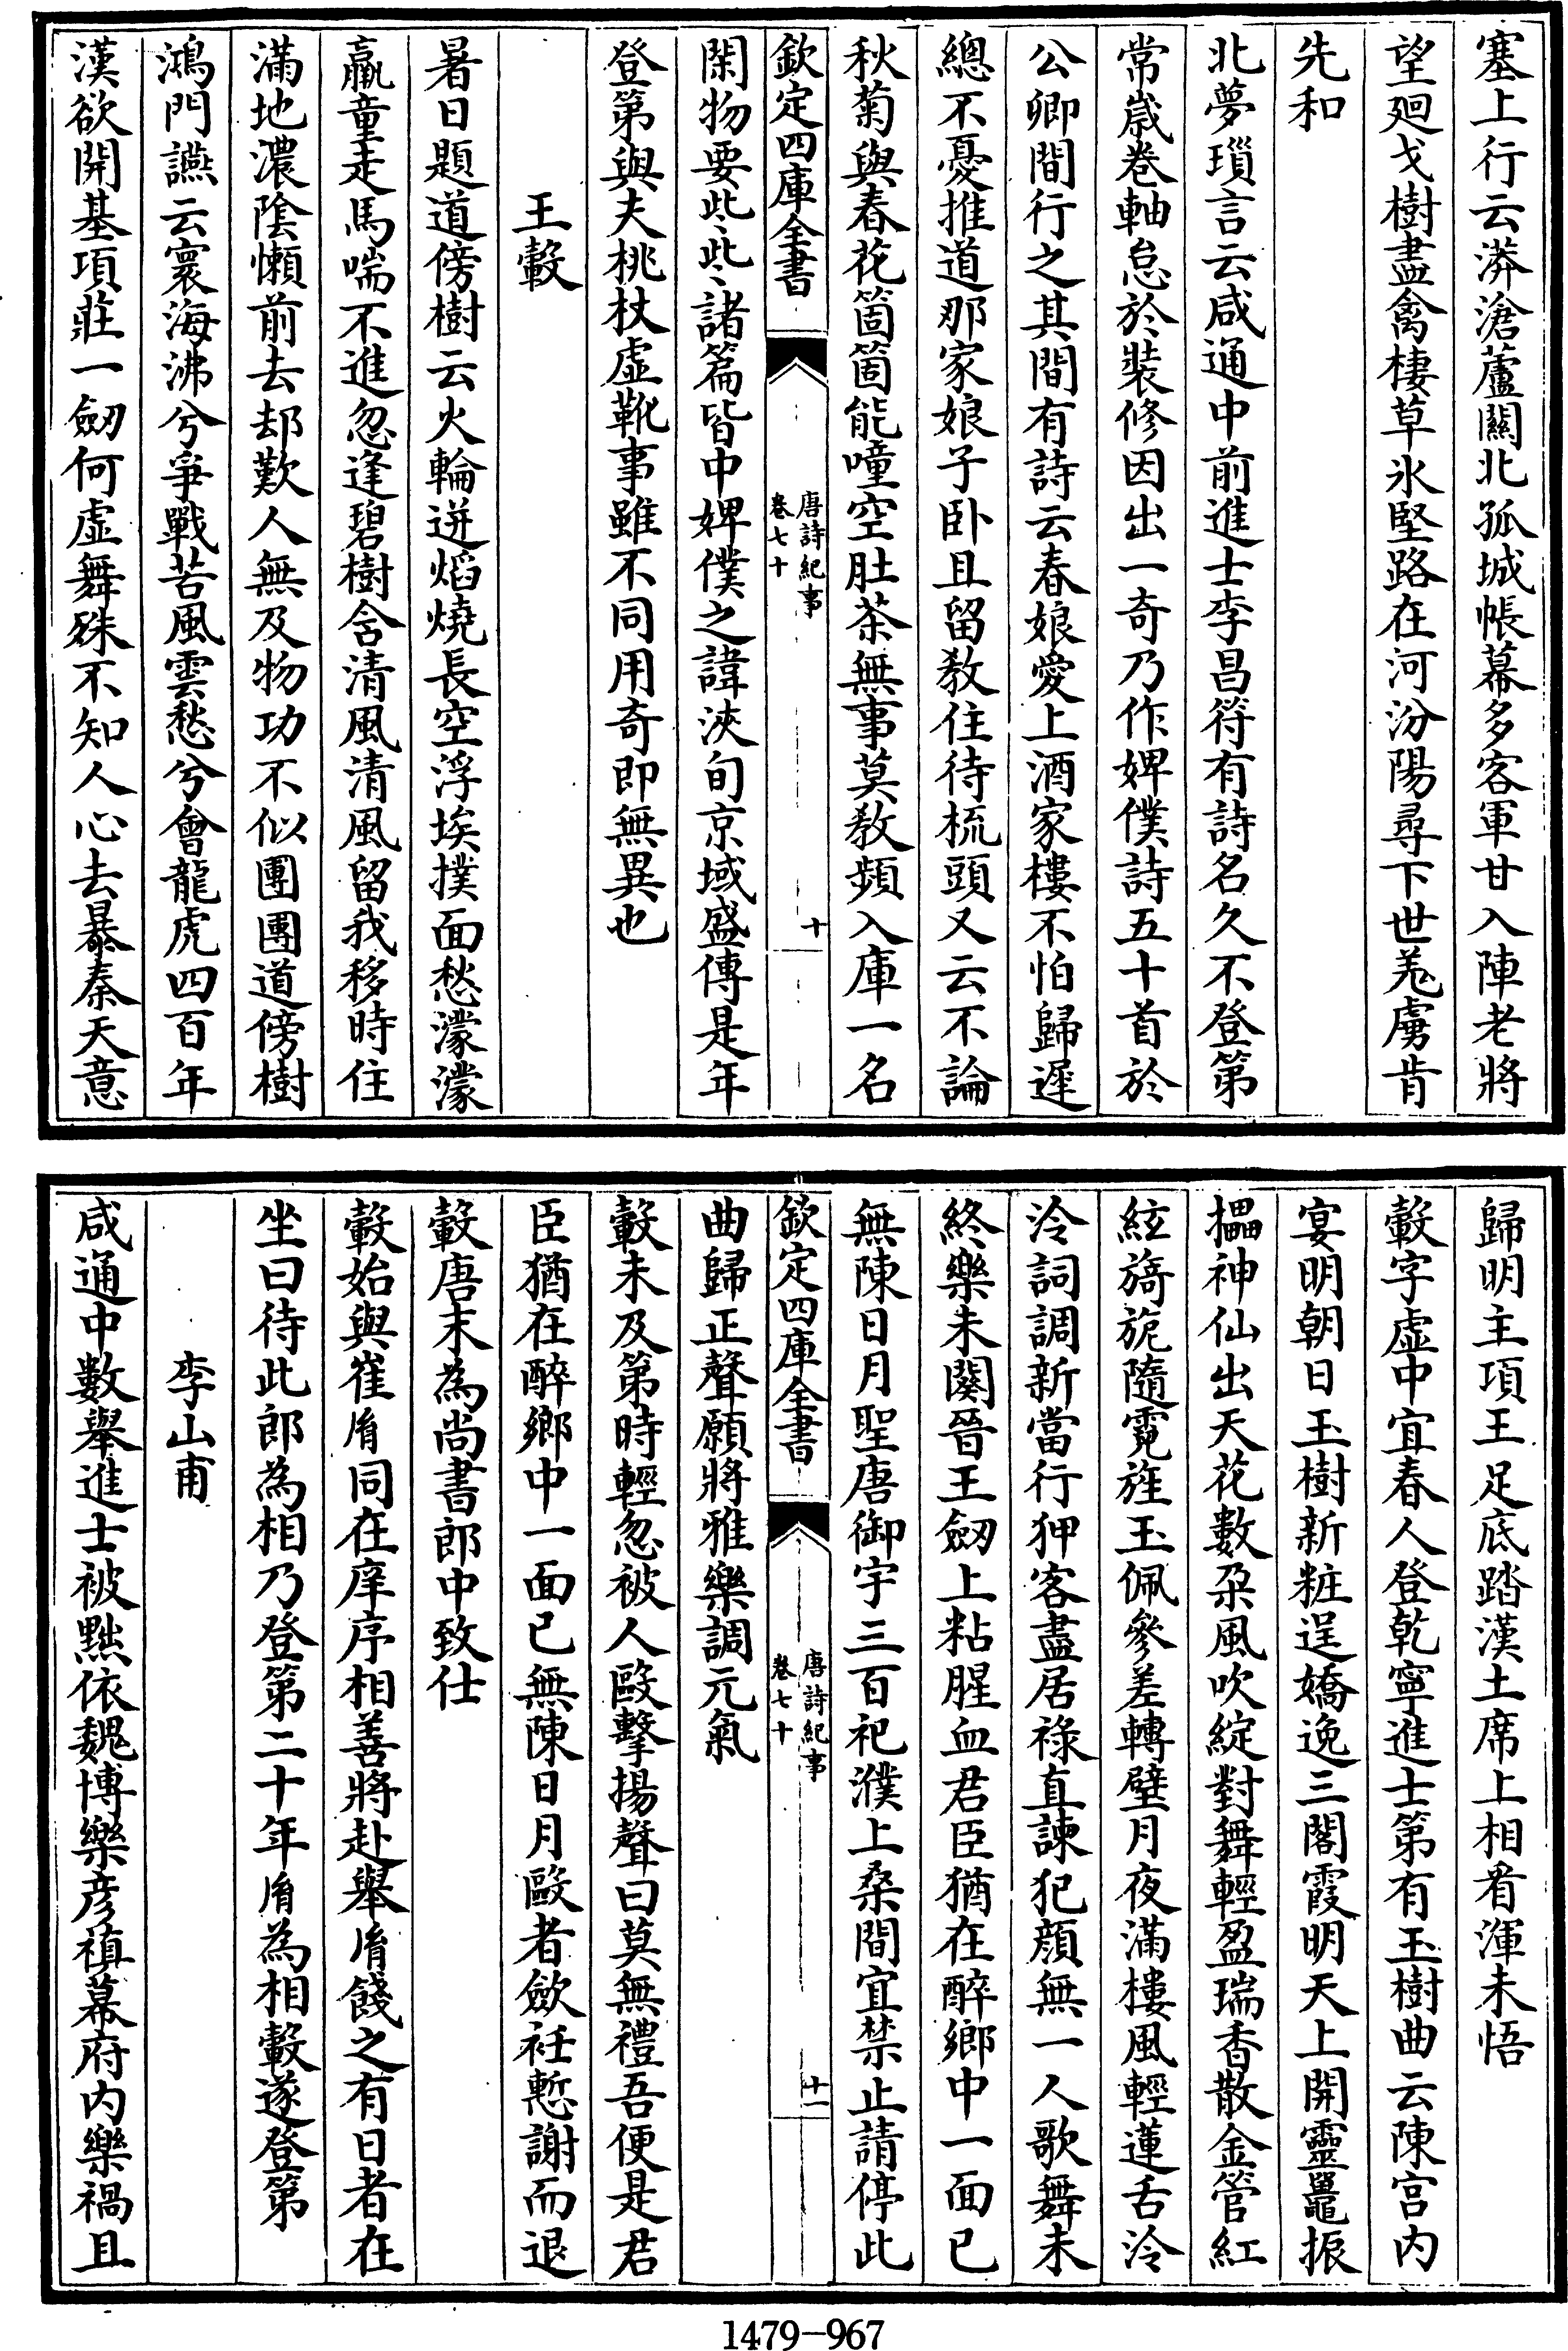 塞上行云漭滄蘆關北孤城帳幕多客軍甘入陣老將
望廻戈樹盡禽棲草氷堅路在河汾陽尋下世羗虜肯
先和
北夢瑣言云咸通中前進士李昌符有詩名久不登第
常嵗卷軸怠於裝修因出一奇乃作婢僕詩五十首於
公卿間行之其間有詩云春娘愛上酒家樓不怕歸遲
總不憂推道那家娘子卧且留教住待梳頭又云不論
秋菊與春花箇箇能噇空肚茶無事莫教頻入庫一名
欽定四庫全書
唐詩紀事
卷七十
十
閑物要些些諸篇皆中婢僕之諱浹旬京域盛傳是年
登第與夫桃杖虛靴事雖不同用奇即無異也
王轂
暑日題道傍樹云火輪迸燄燒長空浮埃撲面愁濛濛
羸童走馬喘不進忽逢碧樹含清風清風留我移時住
滿地濃陰懶前去却歎人無及物功不似團團道傍樹
鴻門讌云寰海沸兮爭戰苦風雲愁兮會龍虎四百年
漢欲開基項莊一劒何虛舞殊不知人心去暴秦天意
歸明主項王足底踏漢土席上相看渾未悟
轂字虛中宜春人登乾寧進士第有玉樹曲云陳宫内
宴明朝日玉樹新粧逞嬌逸三閣霞明天上開靈鼉振
擂神仙出天花數朶風吹綻對舞輕盈瑞香散金管紅
絃旖旎隨霓旌玉佩參差轉璧月夜滿樓風輕蓮舌泠
泠詞調新當行狎客盡居祿直諫犯顔無一人歌舞未
終樂未闋晉王劒上粘腥血君臣猶在醉鄉中一面已
無陳日月聖唐御宇三百祀濮上桑間宜禁止請停此
欽定四庫全書
唐詩紀事
卷七十
十一
曲歸正聲願將雅樂調元氣
轂未及第時輕忽被人毆擊揚聲曰莫無禮吾便是君
臣猶在醉鄉中一面已無陳日月毆者歛衽慙謝而退
轂唐末為尚書郎中致仕
轂始與崔㣧同在庠序相善將赴舉㣧餞之有日者在
坐曰待此郎為相乃登第二十年㣧為相轂遂登第
李山甫
咸通中數舉進士被黜依魏博樂彦禎幕府内樂禍且
1479-967